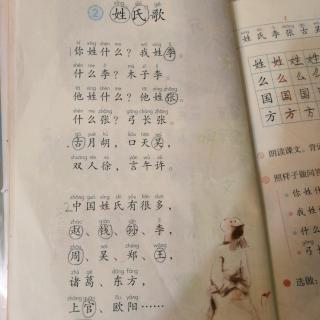 ② 姓氏歌
你姓什么？我姓李。
什么李？木子李。
他姓什么？他姓张。
什么张？弓长张。
古月胡，口天吴，
双人徐，言午许。
中国姓氏有很多，
赵、钱、孙、李，
周、吴、郑、王，
诸葛、东方，
上官、欧阳……
姓氏李张古吴
姓姓姓
么么么
国国国
方方方
朗读课文。背
照样子做问答
你姓什
我姓
什么
弓
选做：